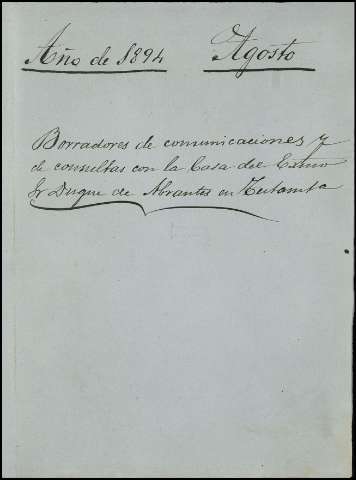 Año de 1894 Agosto
Borradores de comunicaciones y
de consultas con la Casa del Exmo
Sr Duque de Abrantes en